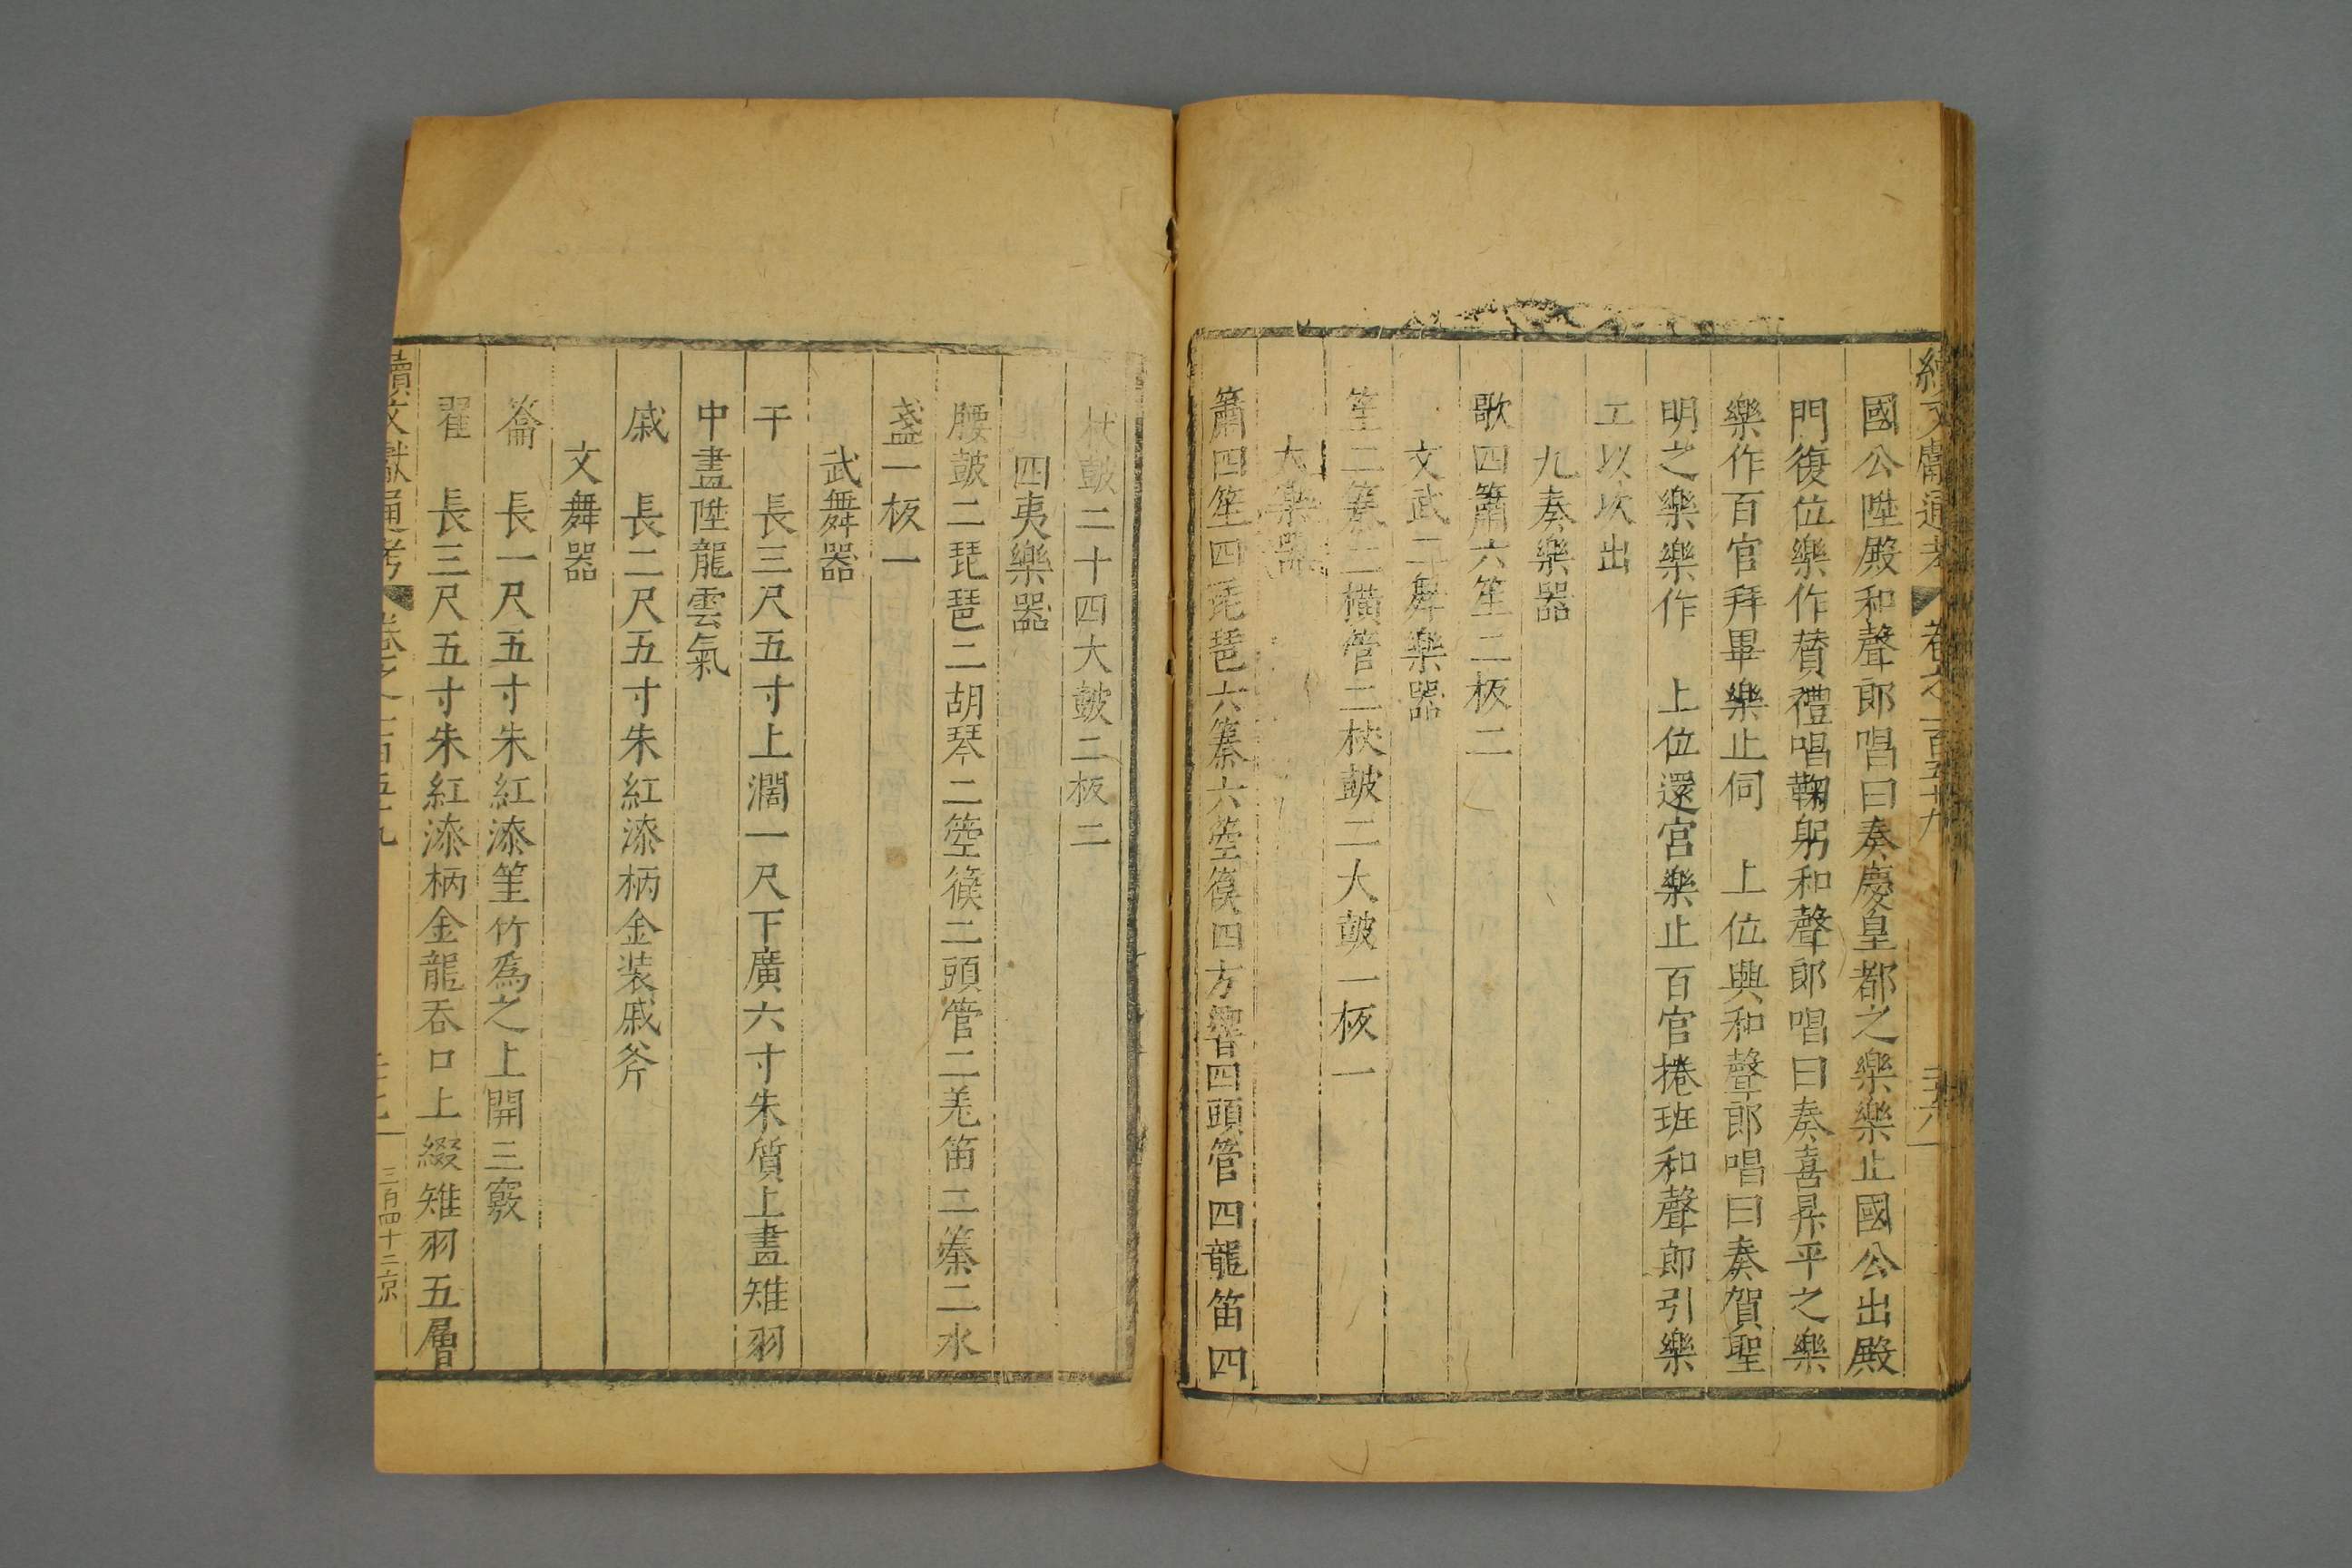 續文獻通考 卷之一百五十九 三十六
國公陞殿和聲郎唱曰奏慶皇都之樂樂止國公出殿
門復位樂作賛禮唱鞠躬和聲郎唱曰奏喜昇平之樂
樂作百官拜畢樂止伺 上位興和聲郎唱曰奏賀聖
明之樂樂作 上位還宮樂止百官捲班和聲郎引樂
工以次出
九奏樂器
歌四簫六笙二板二
文武二舞樂器
笙二䈑二橫管二杖鼓二大鼓一板一
大樂器
簫四笙四琵琶六䈑六箜篌四方響四頭管四龍笛四
杖鼓二十四大鼓二板二
四夷樂器
腰鼓二琵琶二胡琴二箜篌二頭管二羌笛二䈑二水
盞一板一
武舞器
干 長三尺五寸上濶一尺下廣六寸朱質上畫雉羽
中畫陞龍雲氣
戚 長二尺五寸朱紅漆柄金装戚斧
文舞器
籥 長一尺五寸朱紅漆笙竹爲之上開三竅
翟 長三尺五寸朱紅漆柄金龍吞口上綴雉羽五層
續文獻通考 卷之一百五十九 三十七 三百四十二京